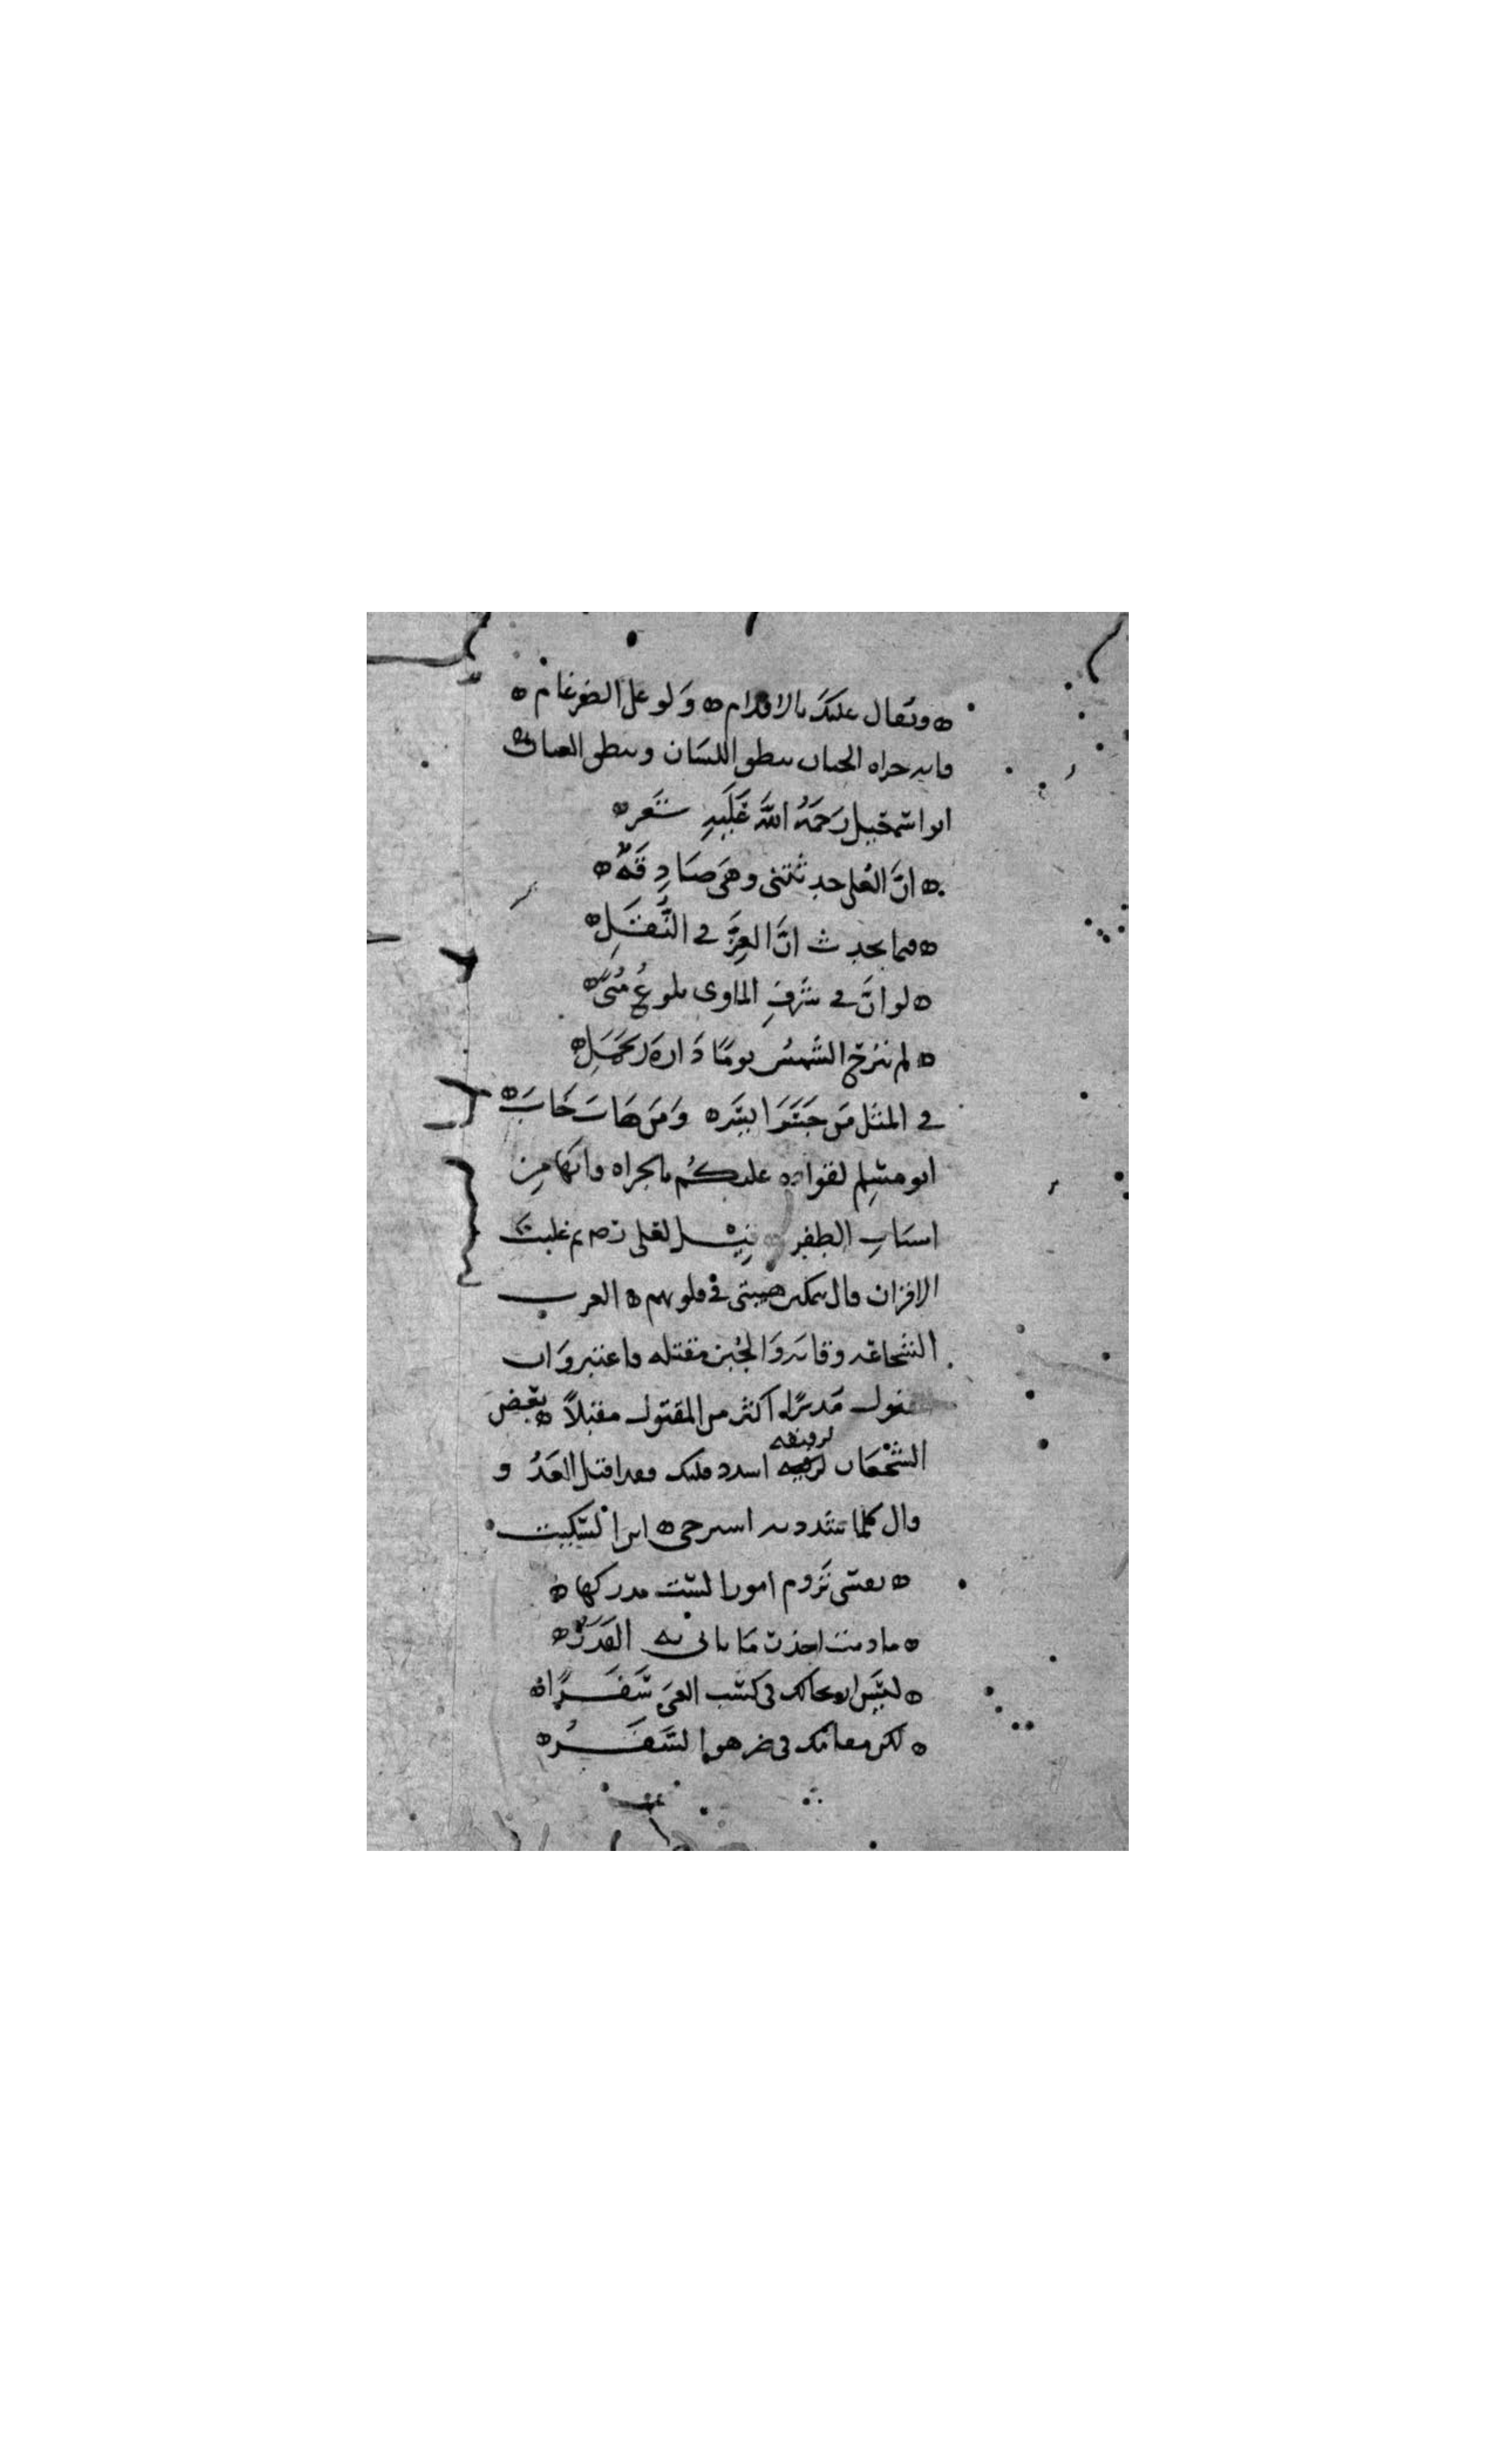 ويقال عليك بالاقدام ولو على الضرغام
فان جراه الجنان ينطق اللسان ويطلق العنان
ابو اسمعيل رَحمَهُ اللَّه عَلَيهِ شعر
انَّ العُلى حدثتنى وهى صَادِقَةٌ
فيما تحدث انَّ العِزَّ في النَّقَلِ
لو انَّ في شَرَفِ الماوى بلوغُ مُنًى
لم تبرح الشمسُ يومًا دَارَةَ الحَمَلِ
في المثل من جَسَرَ ايسَر ومَن هَابَ خَابَ
ابو مسلم لقواده عليكم بالجراه فانها من
اسبَابِ الظفر قيل لعلى رضه بم غلبت
الاقران قال بتمكن هيبتى في قلوبهم العرب
الشجاعة وقايه وَالجُبن مقتله فاعتبروا ان
المقتول مُدبرًا اكثر من المقتول مقبلاً بَعض
الشجعان لرفيقه اشدد قلبك فقد اقبل العَدُو
قال كلما شددته استرخى ابن السكيت
نفسى تَروم امورا لست مدركها
مادمت احذر ما ياتى به القَدَرُ
ليسَ ارتحالك في كسب الغنى سَفَرًا
لكن مقامك في ضر هو السَّفَرُ